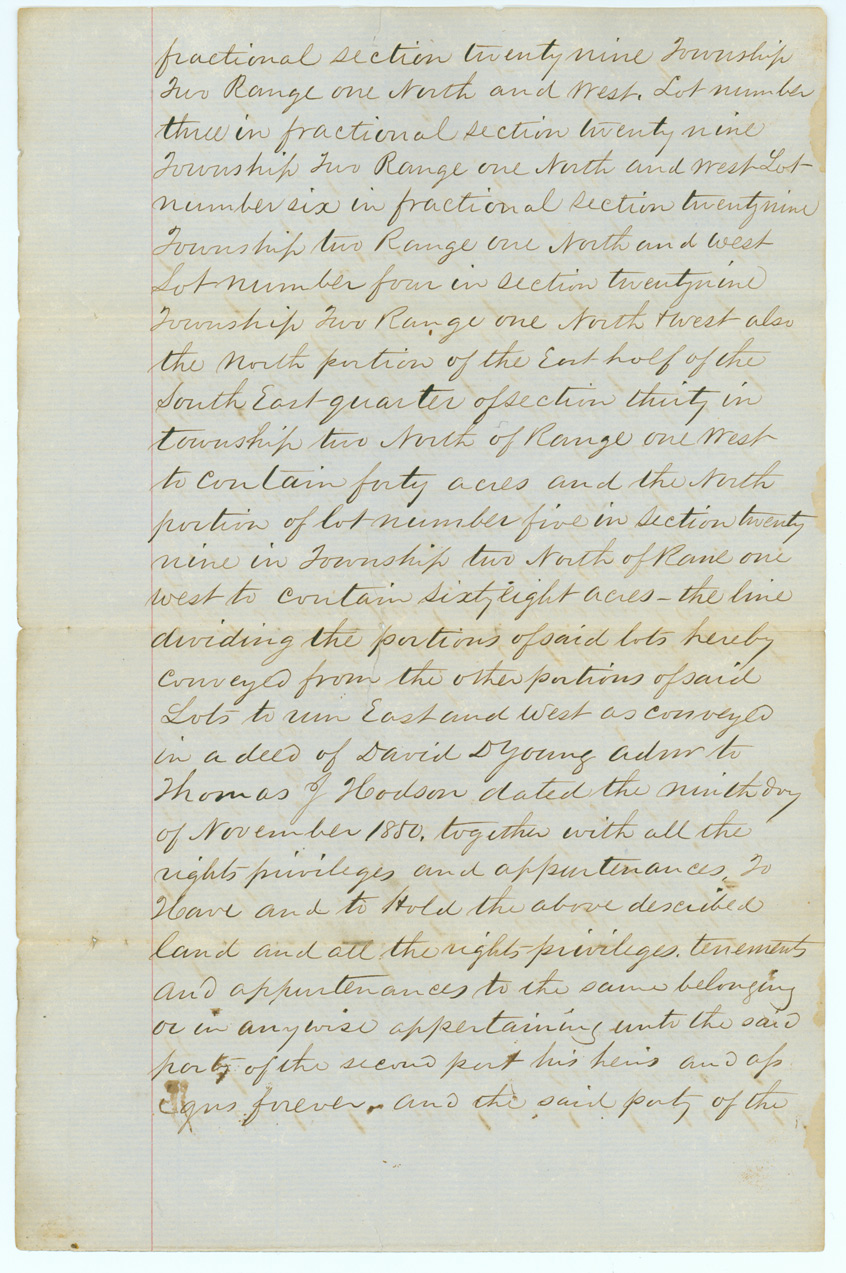 fractional section twenty nine Township
Two Range one North and West. Lot number
three in fractional section twenty nine
Township Two Range one North and West Lot
number six in fractional section twenty nine
Township two Range one North and west
Lot number four in section twenty nine
Township Two Range one North & west also
the North portion of the East half of the
South East quarter of section thirty in
township two North of Range one West
to contain forty acres and the North
portion of lot number five in section twenty
nine in Township two North of Rane one
west to contain sixty eight acres – the line
dividing the portions of said lots hereby
conveyed from the other portions of said
Lots to run East and West as conveyed
in a deed of David D Young admr to
Thomas J Hodson dated the ninth day
of November 1850. together with all the
rights privileges and appurtenances. To
Have and to Hold the above described
land and all the rights privileges. tenements
and appurtenances to the same belonging
or in anywise appertaining unto the said
party of the second part his heirs and as
signs forever. and the said party of the